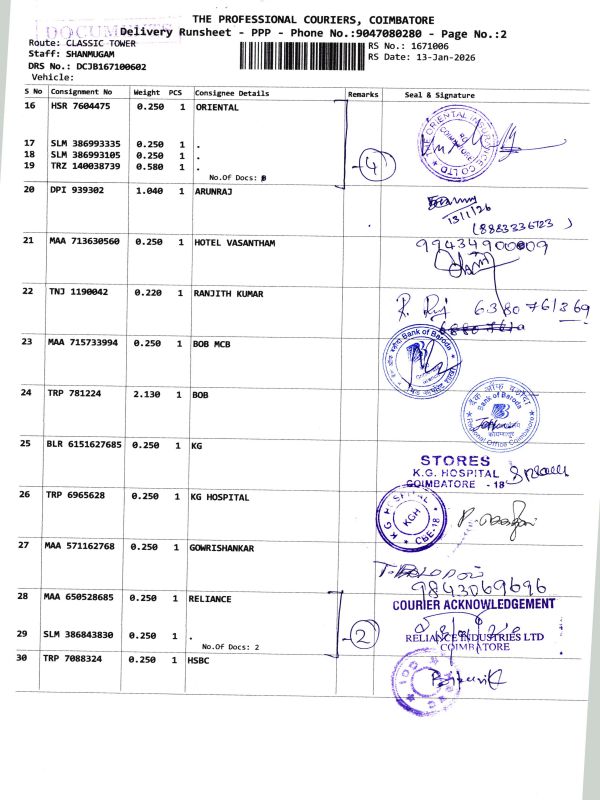 THE PROFESSIONAL COURIERS, COIMBATORE
DOCUMENTS
Delivery Runsheet - PPP - Phone No.:9047080280 - Page No.:2
Route: CLASSIC TOWER
Staff: SHANMUGAM
DRS No.: DCJB167100602
Vehicle:
RS No.: 1671006
RS Date: 13-Jan-2026
S No Consignment No Weight PCS Consignee Details Remarks Seal & Signature
16 HSR 7604475 0.250 1 ORIENTAL
17 SLM 386993335 0.250 1 .
18 SLM 386993105 0.250 1 .
19 TRZ 140038739 0.580 1 .
No.Of Docs:
4
THE ORIENTAL INSURANCE CO LTD
20 DPI 939302 1.040 1 ARUNRAJ
13/1/26
21 MAA 713630560 0.250 1 HOTEL VASANTHAM
22 TNJ 1190042 0.220 1 RANJITH KUMAR
23 MAA 715733994 0.250 1 BOB MCB
Bank of Baroda
24 TRP 781224 2.130 1 BOB
बैंक ऑफ़ बड़ौदा
Bank of Baroda
Regional Office Coimbatore
25 BLR 6151627685 0.250 1 KG
STORES
K.G. HOSPITAL
COIMBATORE - 18
26 TRP 6965628 0.250 1 KG HOSPITAL
K G HOSPITAL
KGH
CBE-18
27 MAA 571162768 0.250 1 GOWRISHANKAR
9843069696
28 MAA 650528685 0.250 1 RELIANCE
29 SLM 386843830 0.250 1 .
No.Of Docs: 2
2
COURIER ACKNOWLEDGEMENT
RELIANCE INDUSTRIES LTD
COIMBATORE
30 TRP 7088324 0.250 1 HSBC